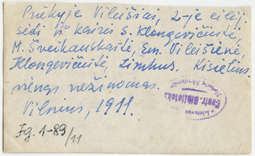 Priekyje Vileišiai, 2-je eilėj
sėdi iš kairės S. Klongevičiūtė,
M. Šveikauskaitė, Em. Vileišienė
Klongevičiutė, Zimkus.
vienas nežinomas.
Vilnius, 1911.
Fg. 1-89/11
Centr. Biblioteka